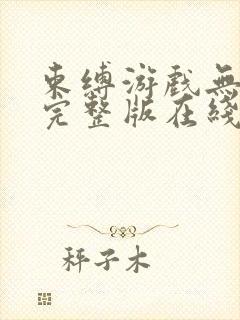 束缚游戏無
完整版在线
秤子木